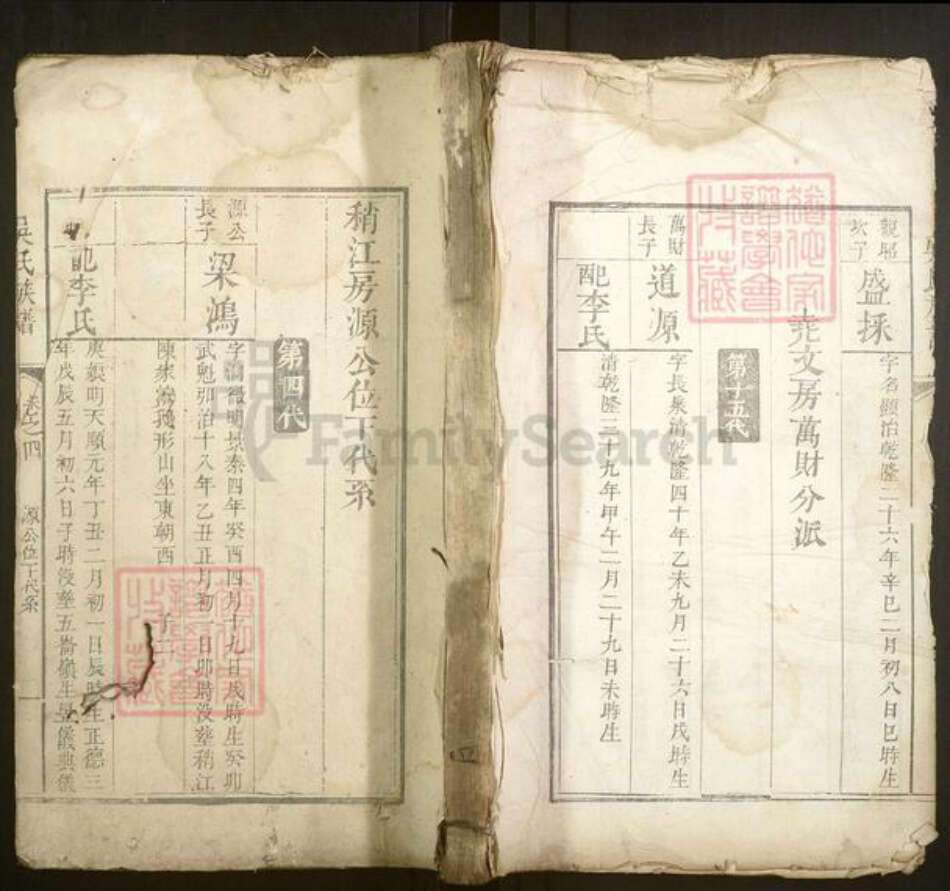 盛採
字名顯治乾隆二十六年辛巳二月初八日巳時生
堯文房萬財分派
第十五代
萬財
長子
道源
字長泉清乾隆四十年乙未九月二十六日戌時生
配李氏
清乾隆三十九年甲午二月二十九日未時生
稍江房源公位下代系
第四代
源公
長子
梁鴻
明景泰四年癸酉四月十九日戌時生癸卯
武魁弘治十八年乙丑正月初一日卯時没塟稍江
形山坐東朝西
子二
配李氏
明天順元年丁丑二月初一日辰時生正德三
年戊辰五月初六日子時没塟五崙嶺生
吳氏族譜
卷之四
源公位下代系
FamilySearch